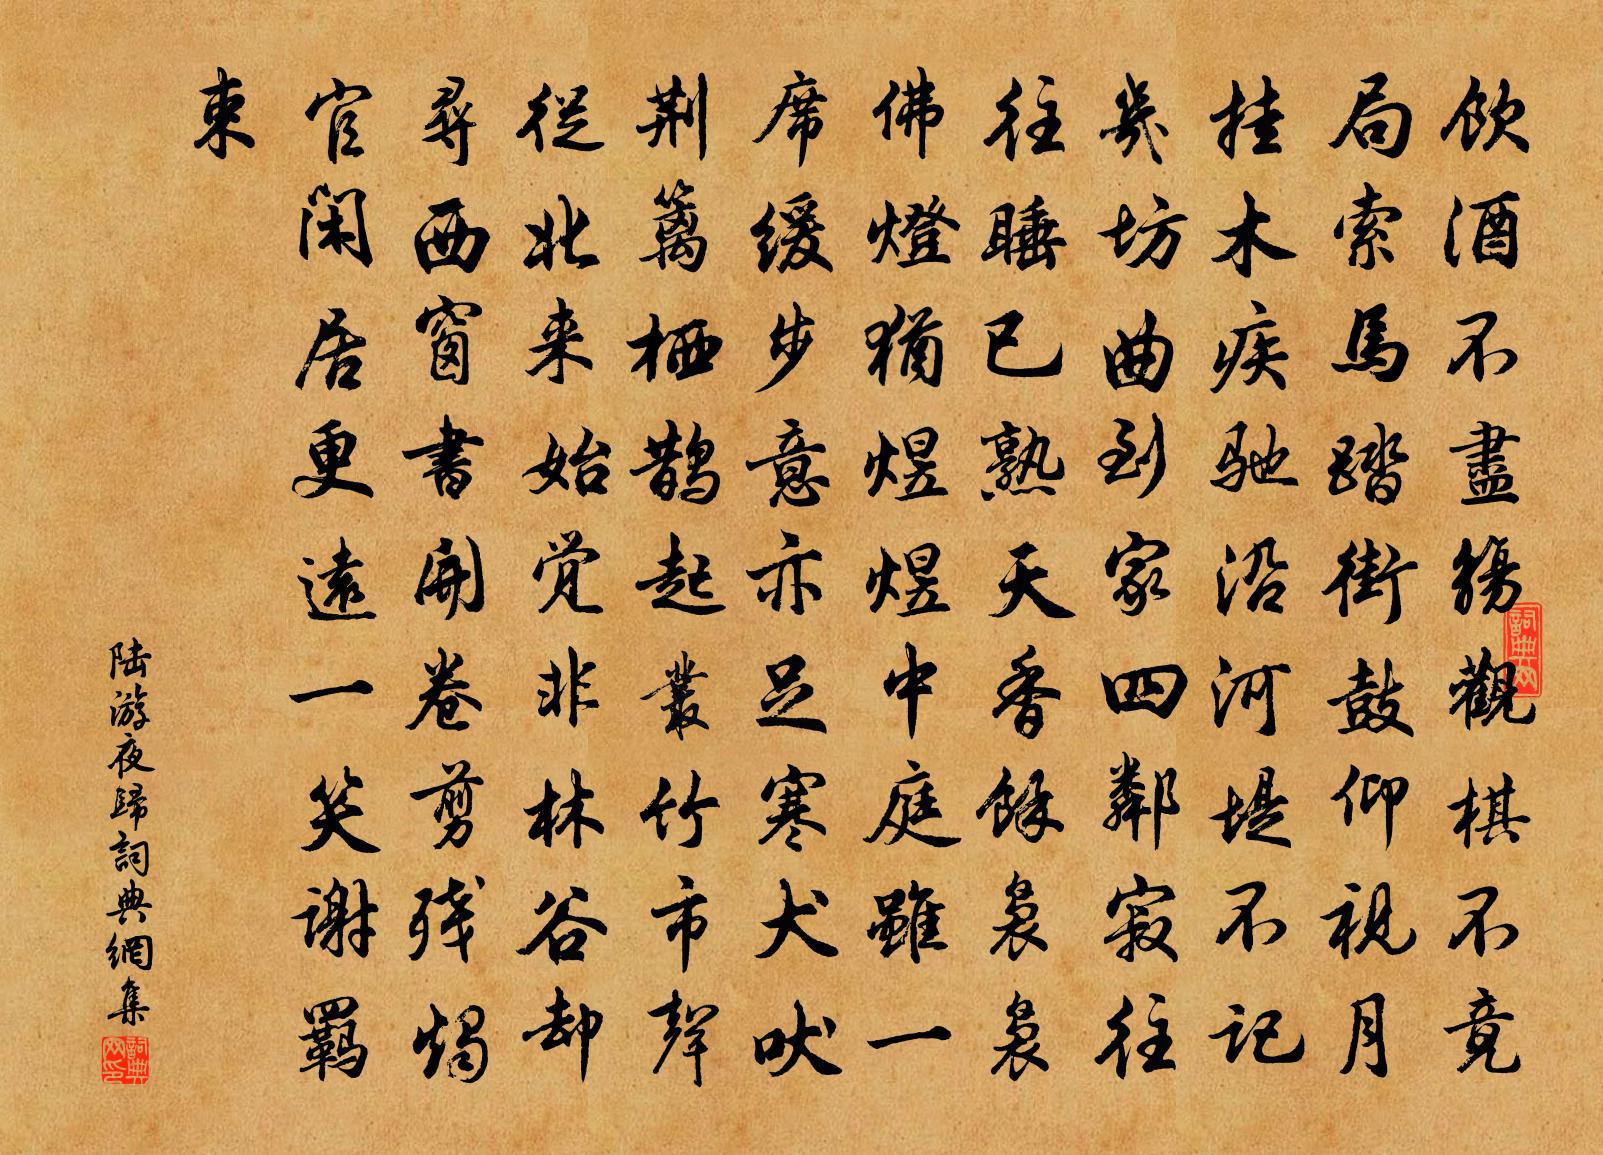 飲酒不盡觴觀棋不竟
局索馬踏街鼓仰視月
挂木疾馳沿河堤不記
幾坊曲到家四鄰寂往
往睡已熟天香餘裊裊
佛燈猶煜煜中庭雖一
席緩步意亦足寒犬吠
荆籬栖鵲起叢竹市聲
從北来始觉非林谷却
尋西窗書開卷剪残燭
官閑居更遠一笑謝羈
束
陆游夜歸詞典網集
詞典网
詞典网印